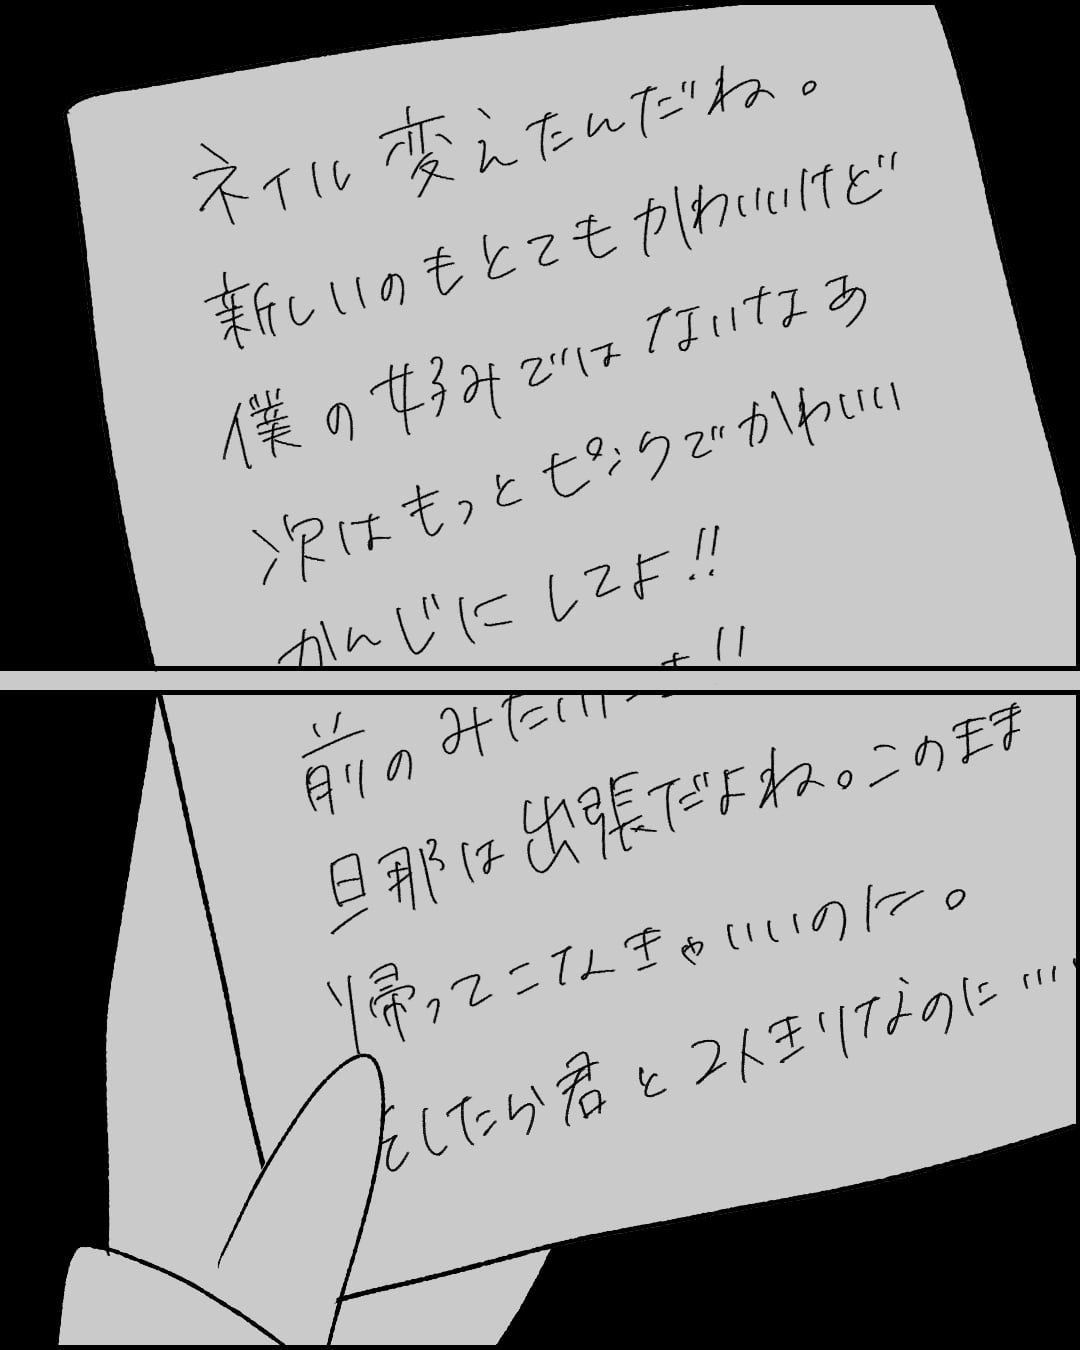 ネイル変えたんだね。
新しいのもとてもかわいいけど
僕の好みではないなあ
次はもっとピンクでかわいい
かんじにしてよ!!
前のみたいに
旦那は出張だよね。このまま
帰ってこなんきゃいいのに。
そしたら君と2人きりなのに…